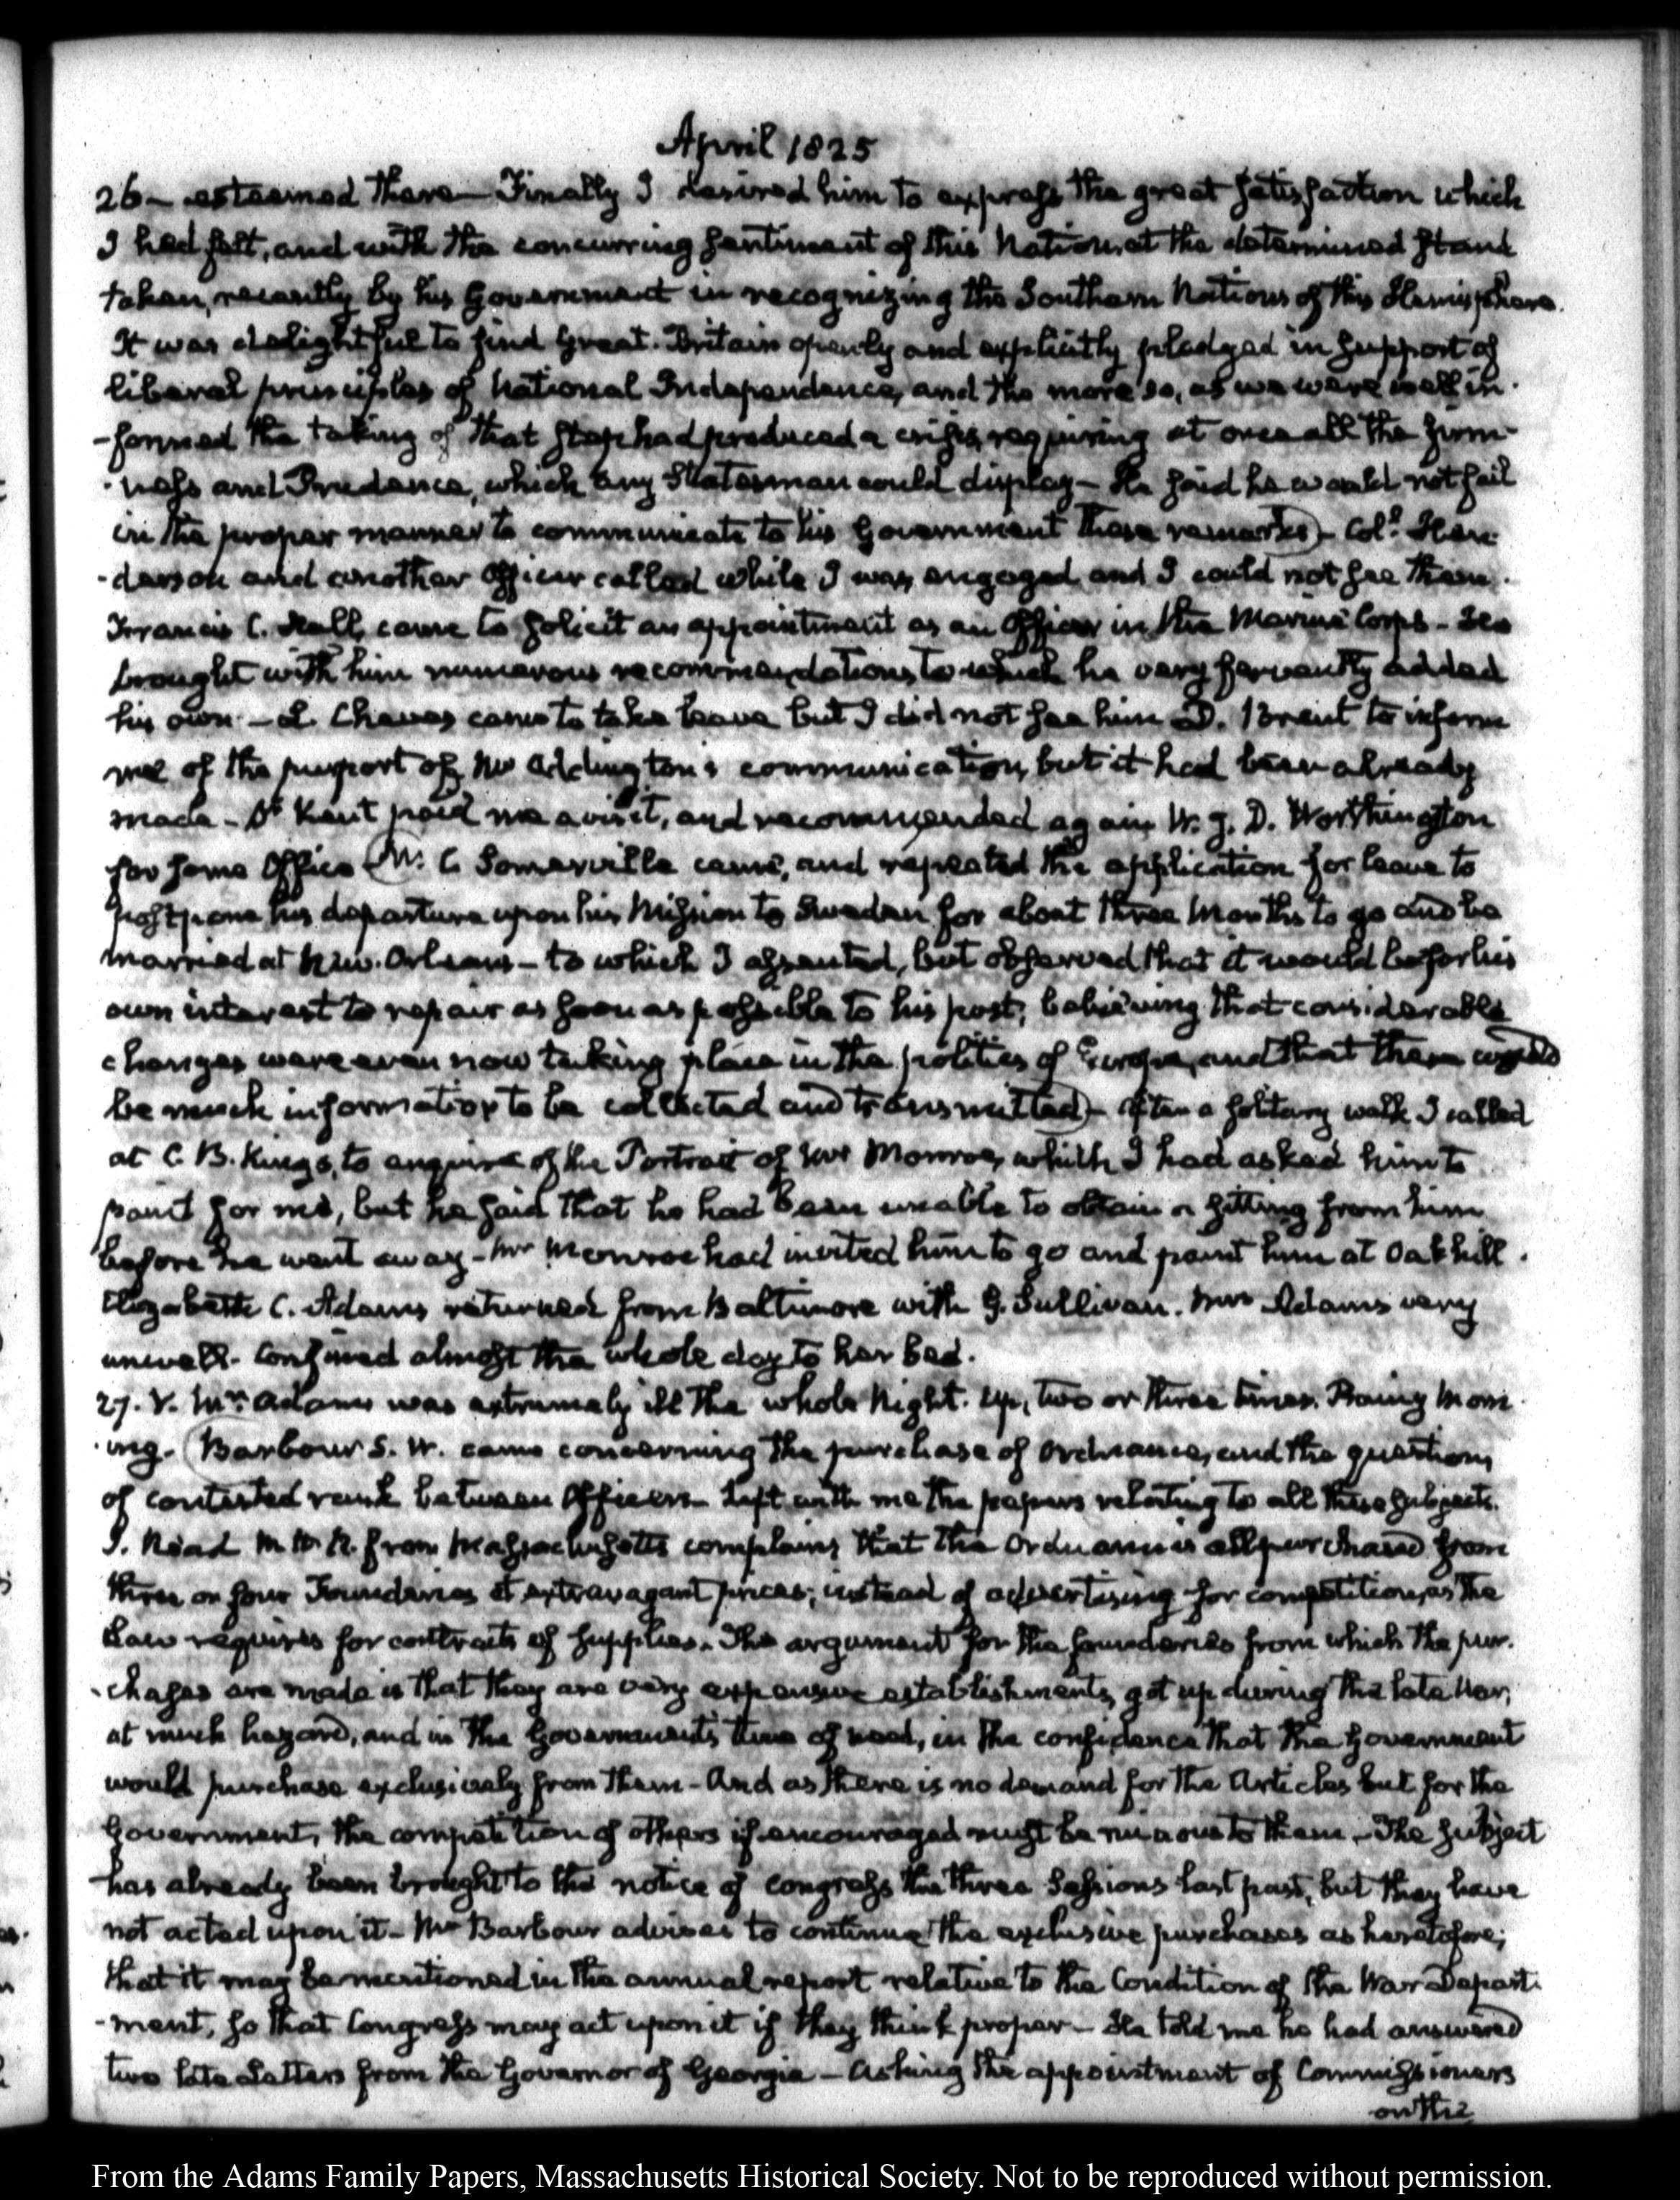 April 1825
26 — esteemed there — Finally I desired him to express the great satisfaction which
I had felt, and with the concurring sentiment of this Nation, at the determined stand
taken, recently by his Government in recognizing the Southern Nations of this Hemisphere.
It was delightful to find Great-Britain openly and explicitly pledged in support of
liberal principles of National Independence, and the more so, as we were well in-
-formed the taking of that step had produced a crisis, requiring at once all the firm-
-ness and Prudence, which any Statesman could display — He said he would not fail
in the proper manner to communicate to his Government these remarks) — Col. Hen-
-derson and another Officer called while I was engaged and I could not see them.
Francis C. Hall, came to solicit an appointment as an Officer in the Marine Corps — He
brought with him numerous recommendations, to which he very fervently added
his own — L. Cheves came to take leave but I did not see him D. Brent to inform
me of the purport of Mr Addington's communication, but it had been already
made — Dr Kent paid me a visit, and recommended again W. G. D. Worthington
for some Office (W. C. Somerville came, and repeated the application for leave to
postpone his departure upon his Mission to Sweden for about three Months to go and be
married at New-Orleans — to which I assented, but observed that it would be for his
own interest to repair as soon as possible to his post; believing that considerable
changes were even now taking place in the politics of Europe, and that there would
be much information to be collected and transmitted) — After a solitary walk I called
at C. B. King's, to enquire of the Portrait of Mr Monroe, which I had asked him to
paint for me, but he said that he had been unable to obtain a sitting from him
before he went away — Mr Monroe had invited him to go and paint him at Oakhill.
Elizabeth C. Adams returned from Baltimore with G. Sullivan. Mrs Adams very
unwell. Confined almost the whole day to her bed.
27. V. Mrs Adams was extremely ill the whole Night. Up, two or three times. Rainy Morn-
-ing. (Barbour S. W. came concerning the purchase of Ordnance, and the questions
of contested rank between Officers — Left with me the papers relating to all these subjects.
J. Read M. H. R. from Massachusetts complains that the Ordnance is all purchased from
three or four Founderies at extravagant prices; instead of advertising for competition, as the
Law requires for contracts of supplies. The argument for the founderies from which the pur-
-chases are made is that they are very expensive establishments, got up during the late War,
at much hazard, and in the Government's time of need, in the confidence that the Government
would purchase exclusively from them — And as there is no demand for the Articles but for the
Government, the competition of others if encouraged must be ruinous to them — The subject
has already been brought to the notice of Congress the three Sessions last past, but they have
not acted upon it — Mr Barbour advises to continue the exclusive purchases as heretofore;
that it may be mentioned in the annual report relative to the Condition of the War Depart-
-ment, so that Congress may act upon it if they think proper — He told me he had answered
two late Letters from the Governor of Georgia — Asking the appointment of Commissioners
on the
From the Adams Family Papers, Massachusetts Historical Society. Not to be reproduced without permission.